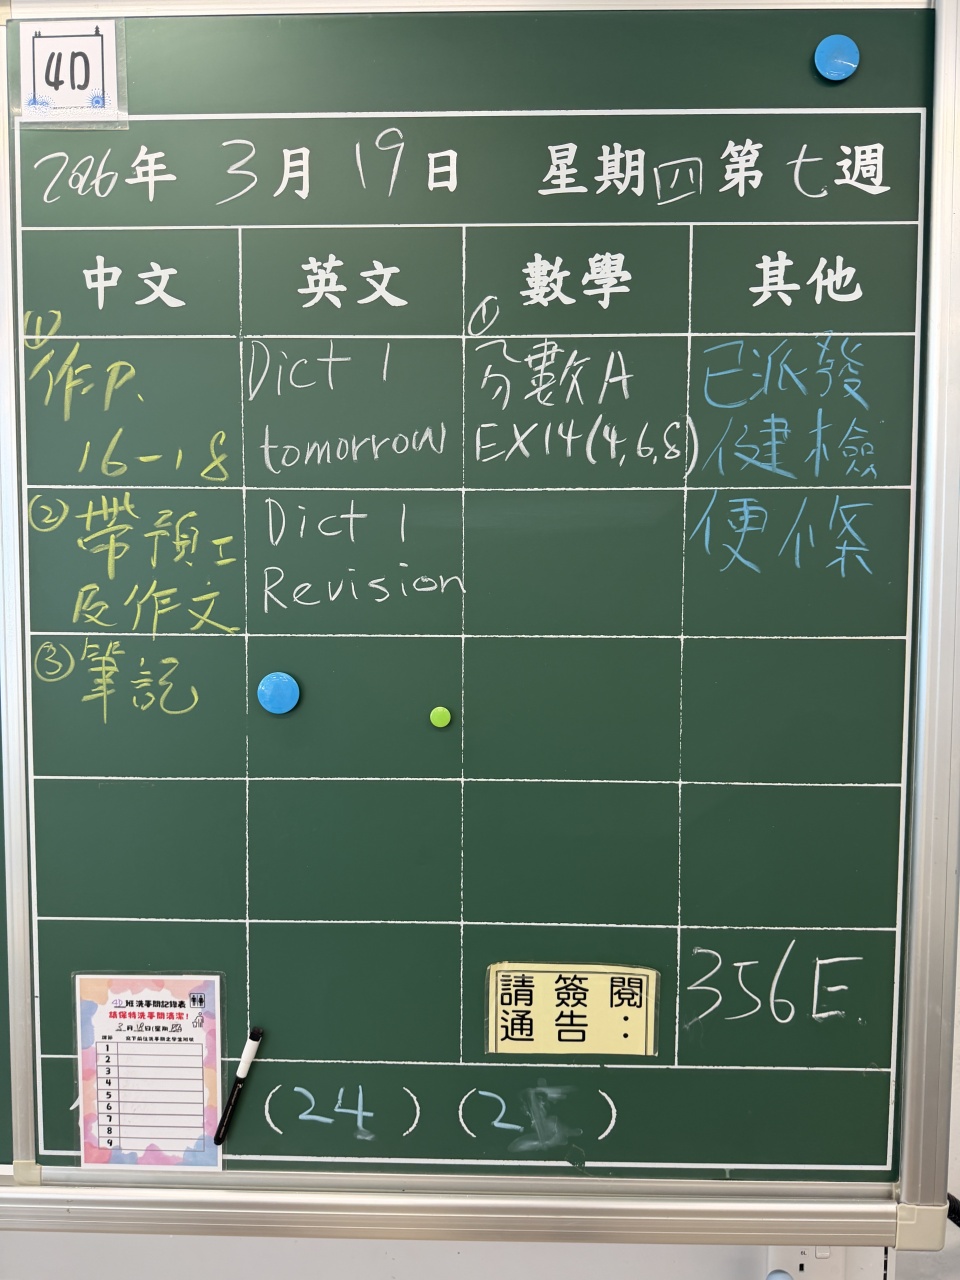 4D
2026年 3月 19日 星期四第七週
中文 英文 數學 其他
① 作P. 16-18
② 帶預工及作文
③ 筆記
Dict 1
tomorrow
Dict 1
Revision
① 分數A
EX14(4,6,8)
已派發
健檢
便條
356E
請簽閱
通告：
4D班洗手間記錄表
請保持洗手間清潔！
1
2
3
4
5
6
7
8
9
(24) (2